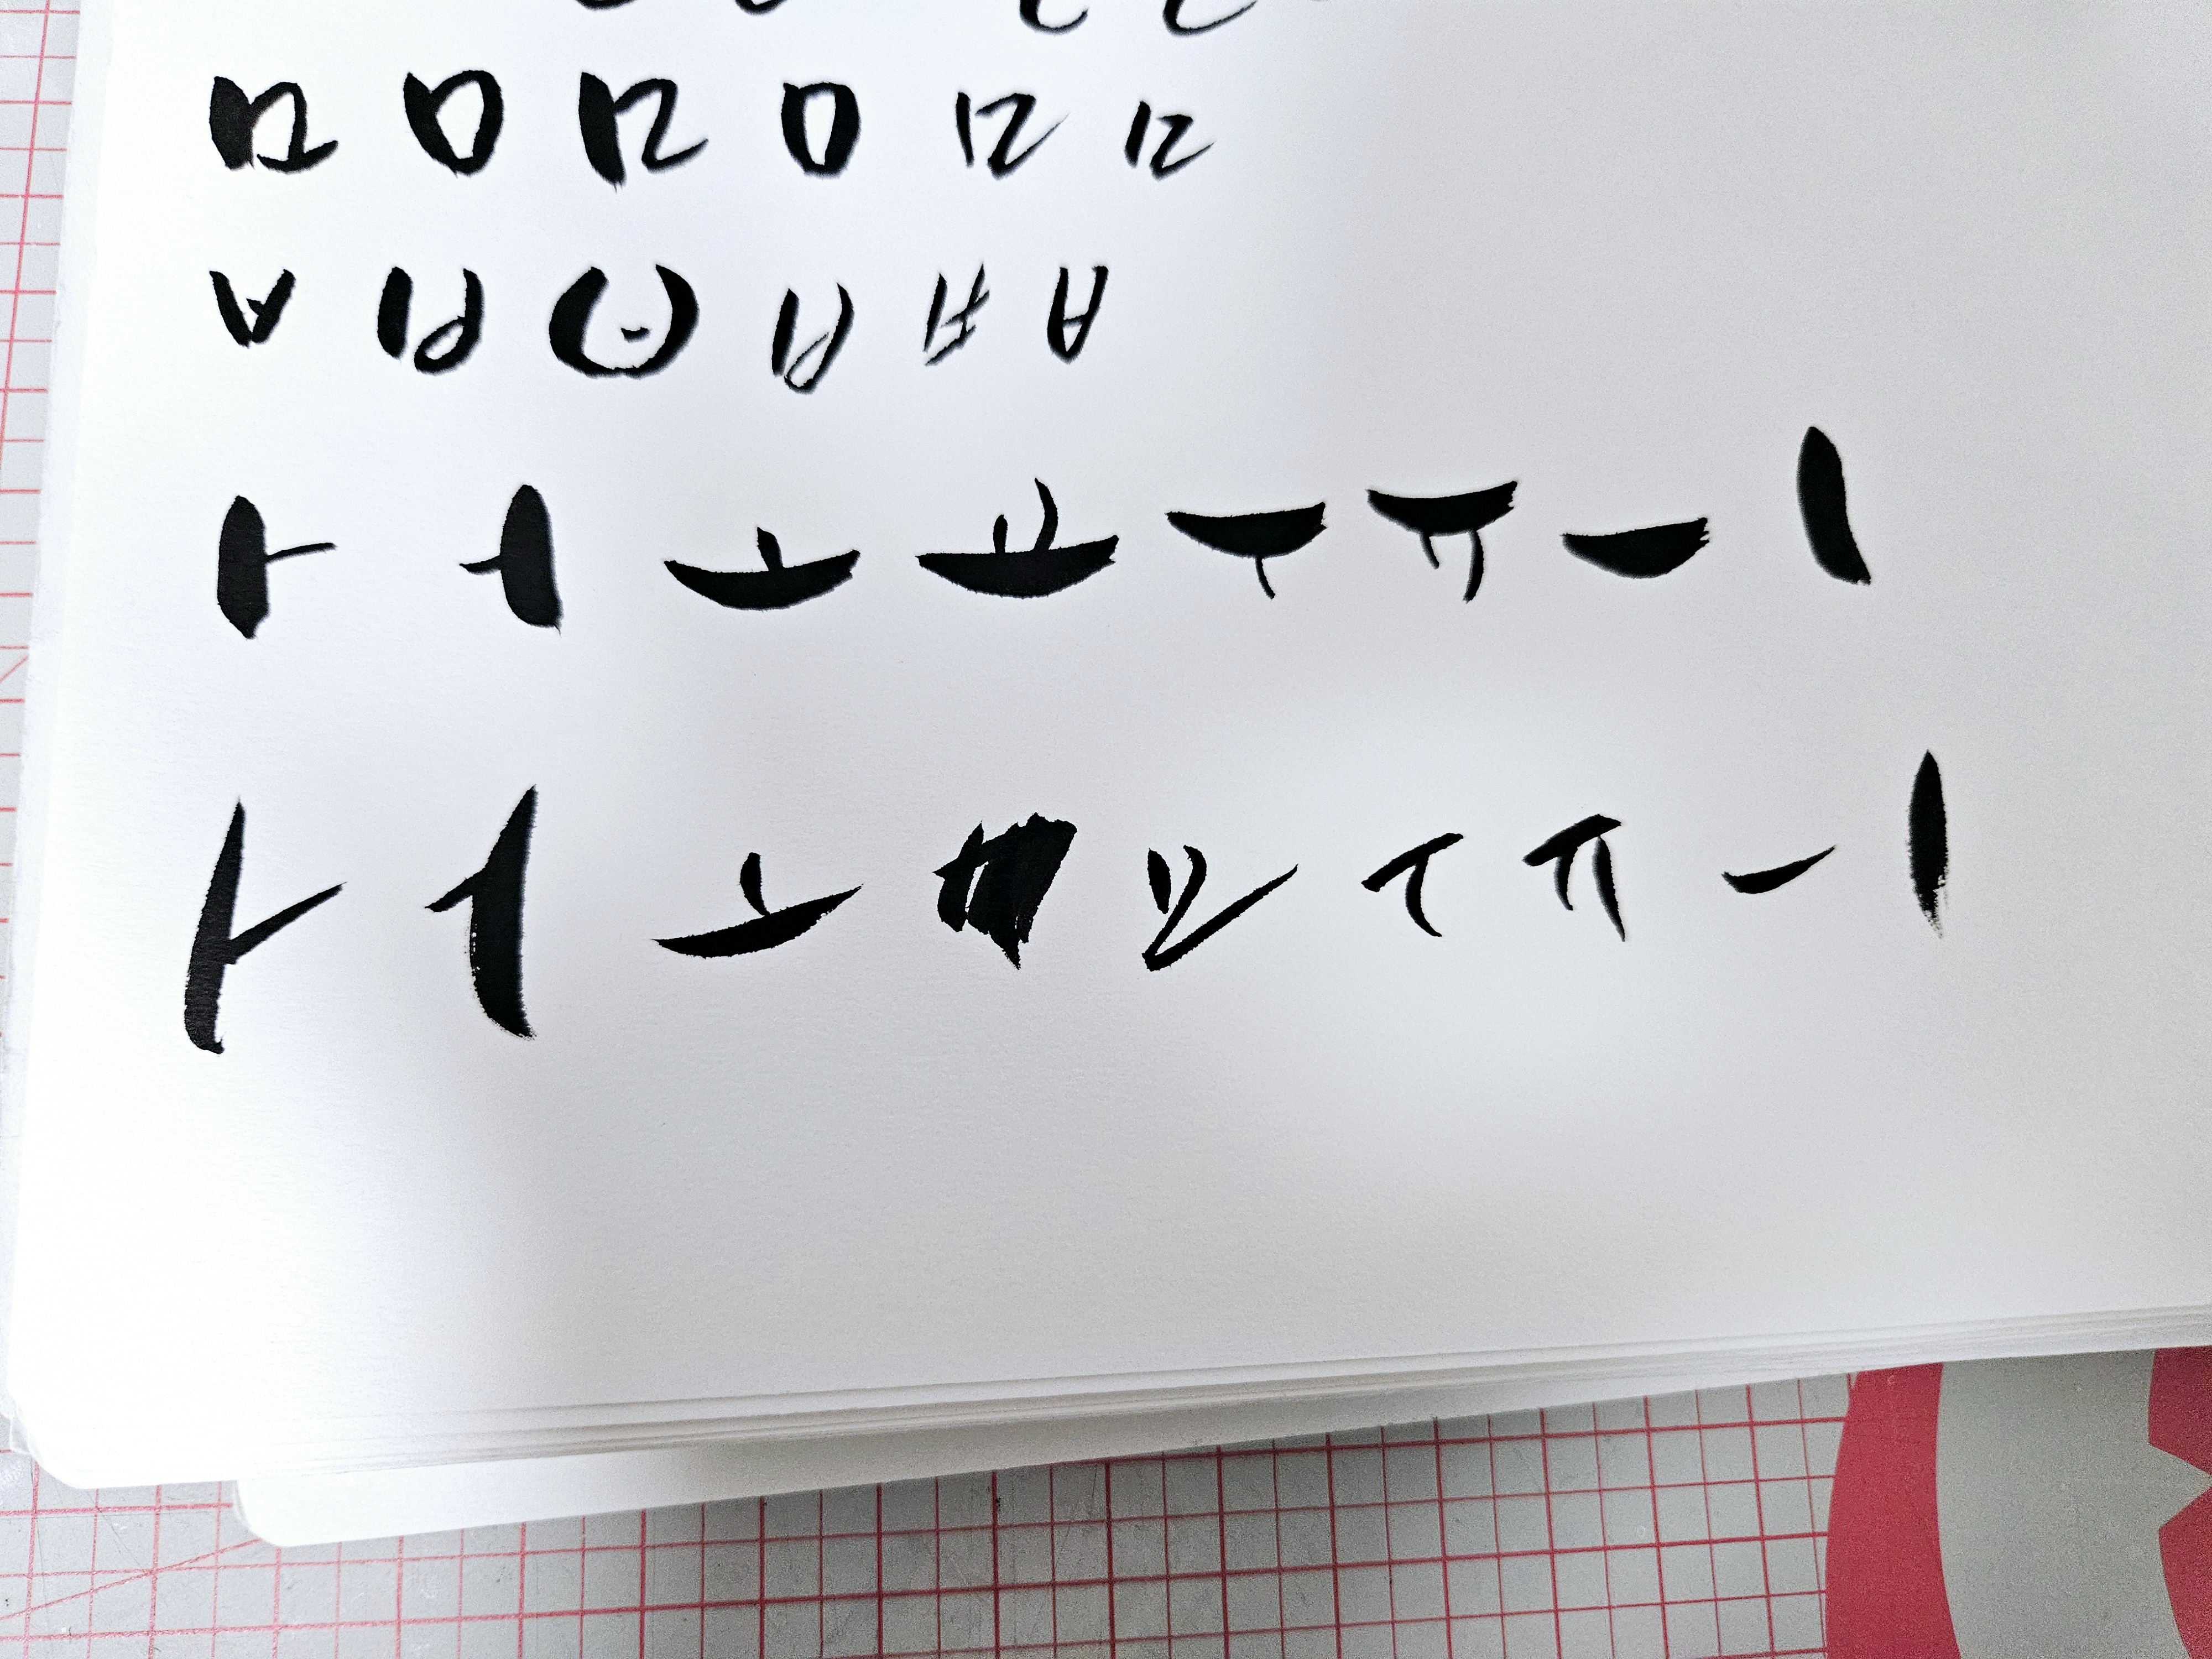 ㅁ ㅁ ㅁ ㅁ ㅁ ㅁ
ㅂ ㅂ ㅂ ㅂ ㅂ ㅂ
ㅏ ㅓ ㅗ ㅛ ㅜ ㅠ ㅡ ㅣ
ㅏ ㅓ ㅗ ㅛ ㅜ ㅠ ㅡ ㅣ